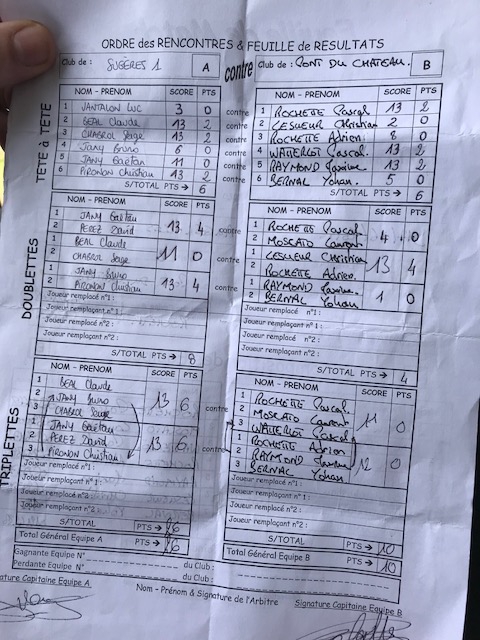 ORDRE des RENCONTRES & FEUILLE de RESULTATS
Club de : SUGERES 1 A contre Club de : PONT DU CHATEAU. B
TETE à TETE
NOM - PRENOM SCORE PTS NOM - PRENOM SCORE PTS
1 JANTALON LUC 3 0 contre 1 ROCHETTE Pascal 13 2
2 BEAL Claude 13 2 contre 2 LESUEUR Christian 2 0
3 CHABROL Serge 13 2 contre 3 ROCHETTE Adrien 8 0
4 JANY Bruno 6 0 contre 4 WATTERLOT Pascal. 13 2
5 JANY Gaëtan 11 0 contre 5 RAYMOND 13 2
6 PIRONON Christian 13 2 contre 6 BERNAL Yohan. 5 0
S/TOTAL PTS → 6 S/TOTAL PTS → 6
DOUBLETTES
NOM - PRENOM SCORE PTS NOM - PRENOM SCORE PTS
1 JANY Gaëtan 13 4 contre 1 ROCHETTE Pascal 4 0
2 PEREZ David 2 MOSCATO Laurent
1 BEAL Claude 11 0 contre 1 LESUEUR Christian 13 4
2 CHABROL Serge 2 ROCHETTE Adrien
1 JANY Bruno 13 4 contre 1 RAYMOND 1 0
2 PIRONON Christian 2 BERNAL Yohan
Joueur remplacé n°1 : Joueur remplacé n°1 :
Joueur remplaçant n°1 : Joueur remplaçant n°1 :
Joueur remplacé n°2 : Joueur remplacé n°2 :
Joueur remplaçant n°2 : Joueur remplaçant n°2 :
S/TOTAL PTS → 8 S/TOTAL PTS → 4
TRIPLETTES
NOM - PRENOM SCORE PTS NOM - PRENOM SCORE PTS
1 BEAL Claude 1 ROCHETTE Pascal
2 JANY Bruno 13 6 contre 2 MOSCATO Laurent 11 0
3 CHABROL Serge 3 WATTERLOT Pascal
1 JANY Gaëtan 1 ROCHETTE Adrien
2 PEREZ David 13 6 contre 2 RAYMOND 12 0
3 PIRONON Christian 3 BERNAL Yohan
Joueur remplacé n°1 : Joueur remplacé n°1 :
Joueur remplaçant n°1 : Joueur remplaçant n°1 :
Joueur remplacé n°2 : Joueur remplacé n°2 :
Joueur remplaçant n°2 : Joueur remplaçant n°2 :
S/TOTAL PTS → S/TOTAL PTS → 10
Total Général Equipe A PTS → Total Général Equipe B PTS → 10
Gagnante Equipe N° du Club :
Perdante Equipe N° du Club :
ature Capitaine Equipe A Nom - Prénom & Signature de l'Arbitre Signature Capitaine Equipe B